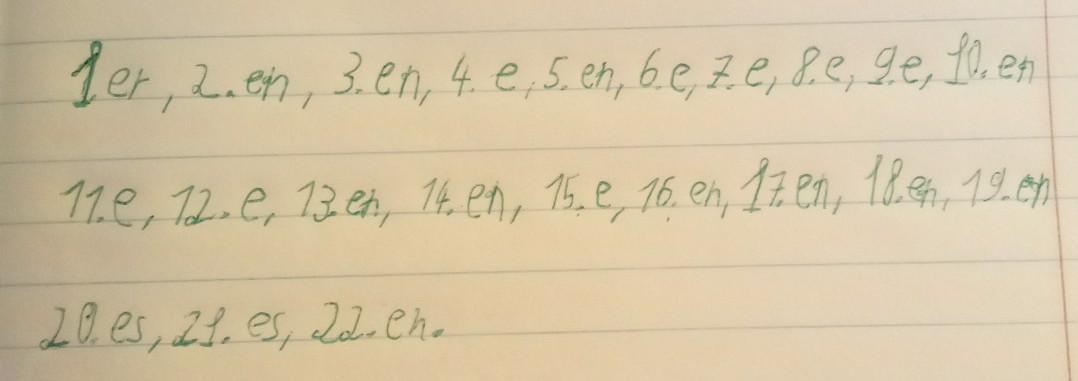 1.er, 2.en, 3.en, 4.e, 5.en, 6.e, 7.e, 8.e, 9.e, 10.en
11.e, 12.e, 13.en, 14.en, 15.e, 16.en, 17.en, 18.en, 19.en
20.es, 21.es, 22.en.